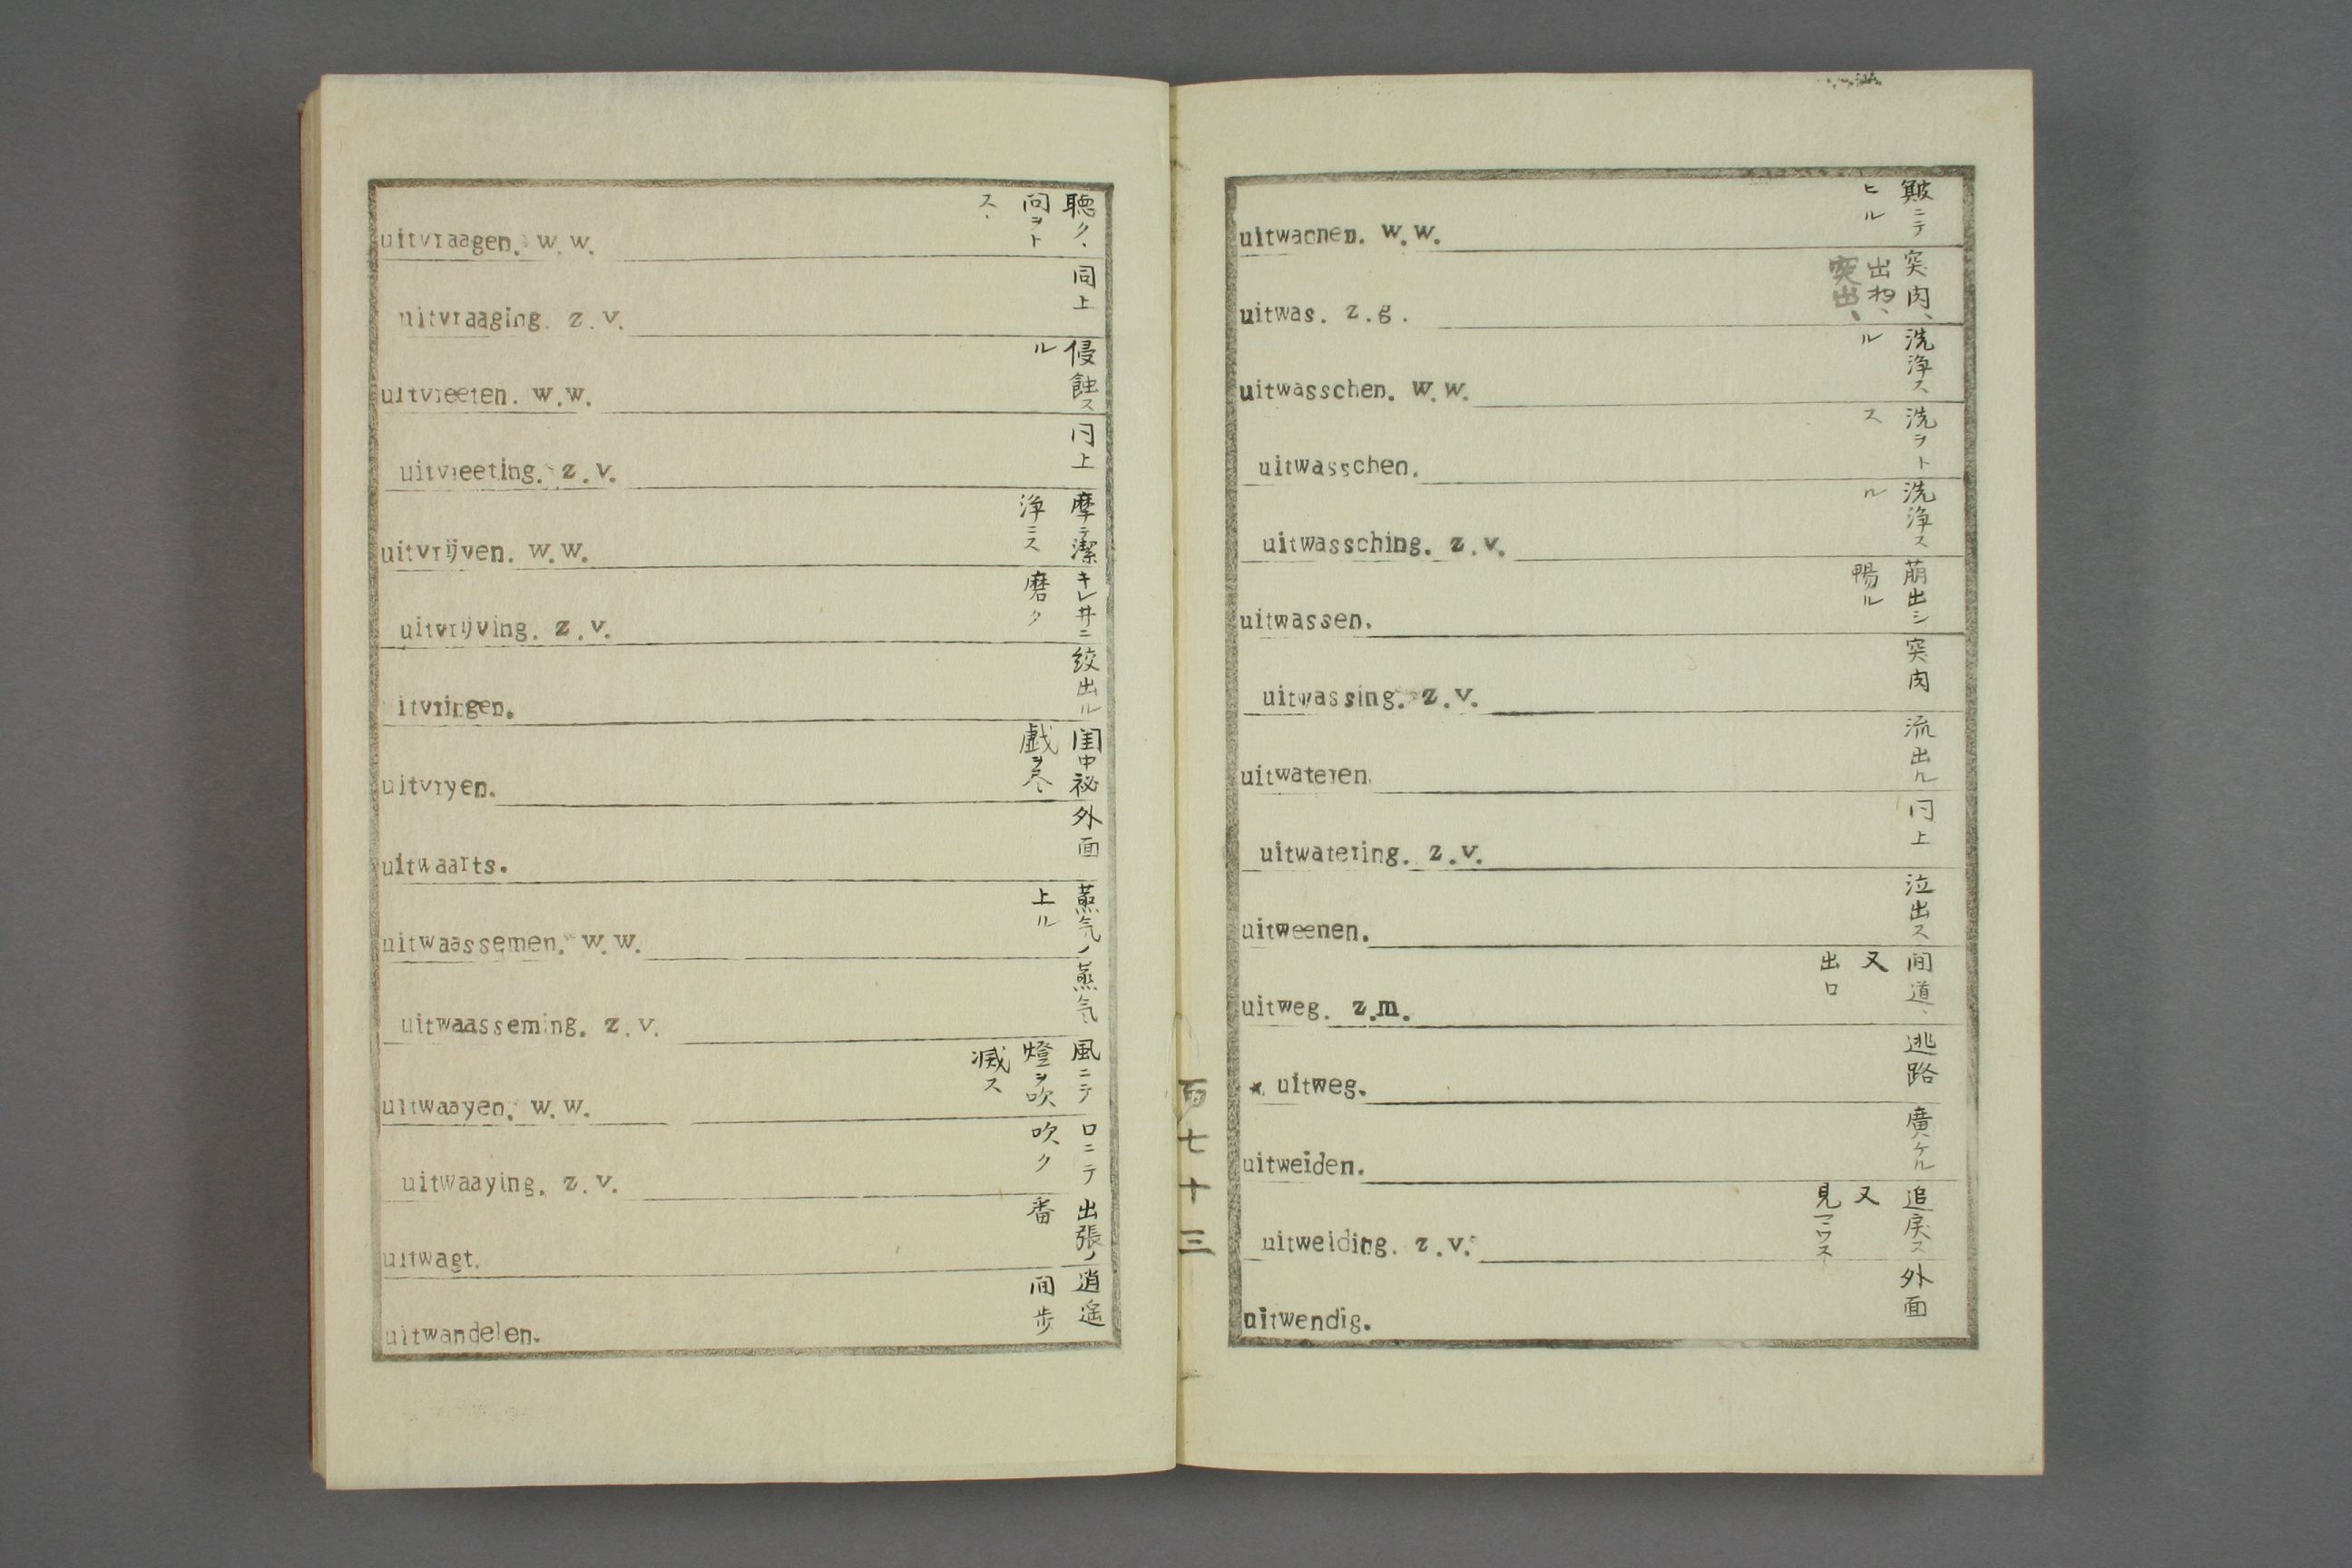 uitvraagen. w.w. 聴ク、問ヲトス、
uitvraaging. z.v. 同上
uitvreeten. w.w. 侵蝕スル
uitvreeting. z.v. 同上
uitvrijven. w.w. 摩テ潔浄ニス
uitvrijving. z.v. キレ井ニ磨ク
itvringen. 絞出ル
uitvryen. 閨中祕戯ヲ尽
uitwaarts. 外面
uitwaassemen. w.w. 蒸気ノ上ル
uitwaasseming. z.v. 蒸気
uitwaayen. w.w. 風ニテ燈ヲ吹滅ス
uitwaaying. z.v. 口ニテ吹ク
uitwagt. 出張ノ番
uitwandelen. 逍遥間歩
uitwannen. w.w. 簸ニテヒル
uitwas. z.g. 突肉、出タ、突出、
uitwasschen. w.w. 洗浄スル
uitwasschen. 洗ヲトス
uitwassching. z.v. 洗浄スル
uitwassen. 萠出シ暢ル
uitwassing. z.v. 突肉
uitwateren. 流出ル
uitwatering. z.v. 同上
uitweenen. 泣出ス
uitweg. z.m. 间道、又出口
* uitweg. 逃路
uitweiden. 廣ケル
uitweiding. z.v. 追戻ス又見マワス
uitwendig. 外面
百七十三